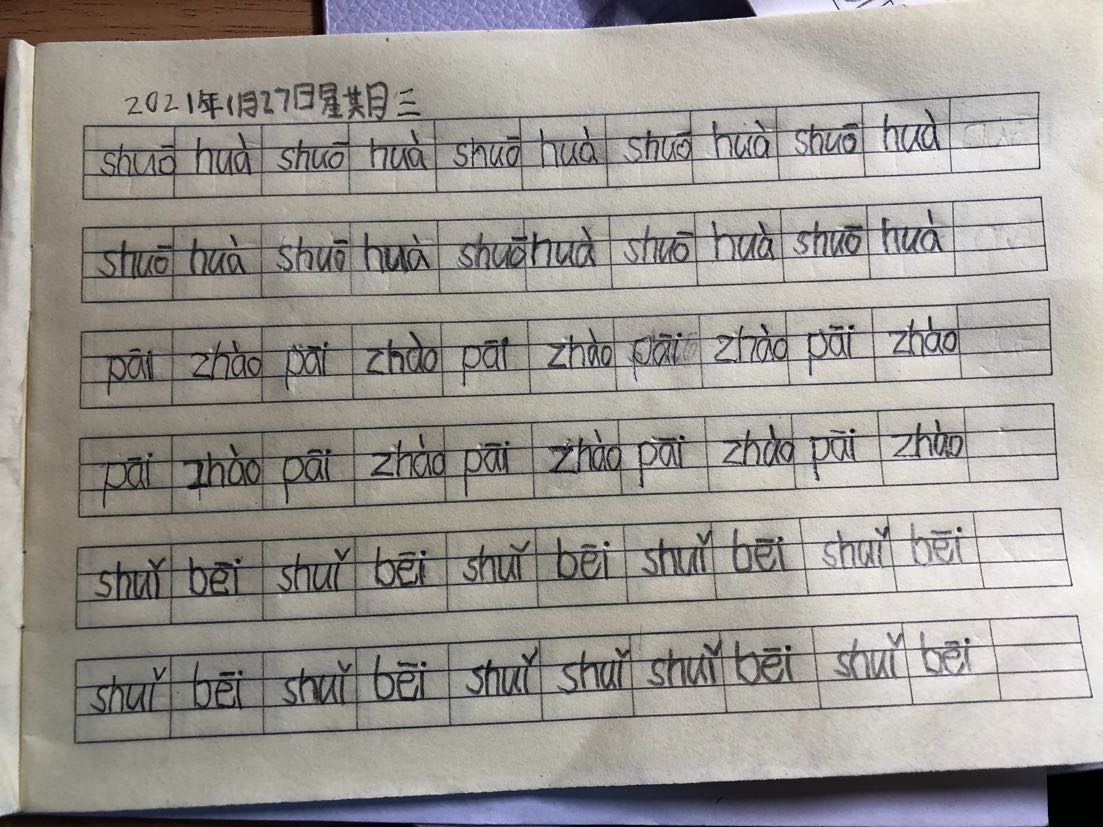 2021年1月27日星其月三
shuō huà shuō huà shuō huà shuō huà shuō huà
shuō huà shuō huà shuō huà shuō huà shuō huà
pāi zhào pāi zhào pāi zhào pāi zhào pāi zhào
pāi zhào pāi zhào pāi zhào pāi zhào pāi zhào
shuǐ bēi shuǐ bēi shuǐ bēi shuǐ bēi shuǐ bēi
shuǐ bēi shuǐ bēi shuǐ shuǐ shuǐ bēi shuǐ bēi